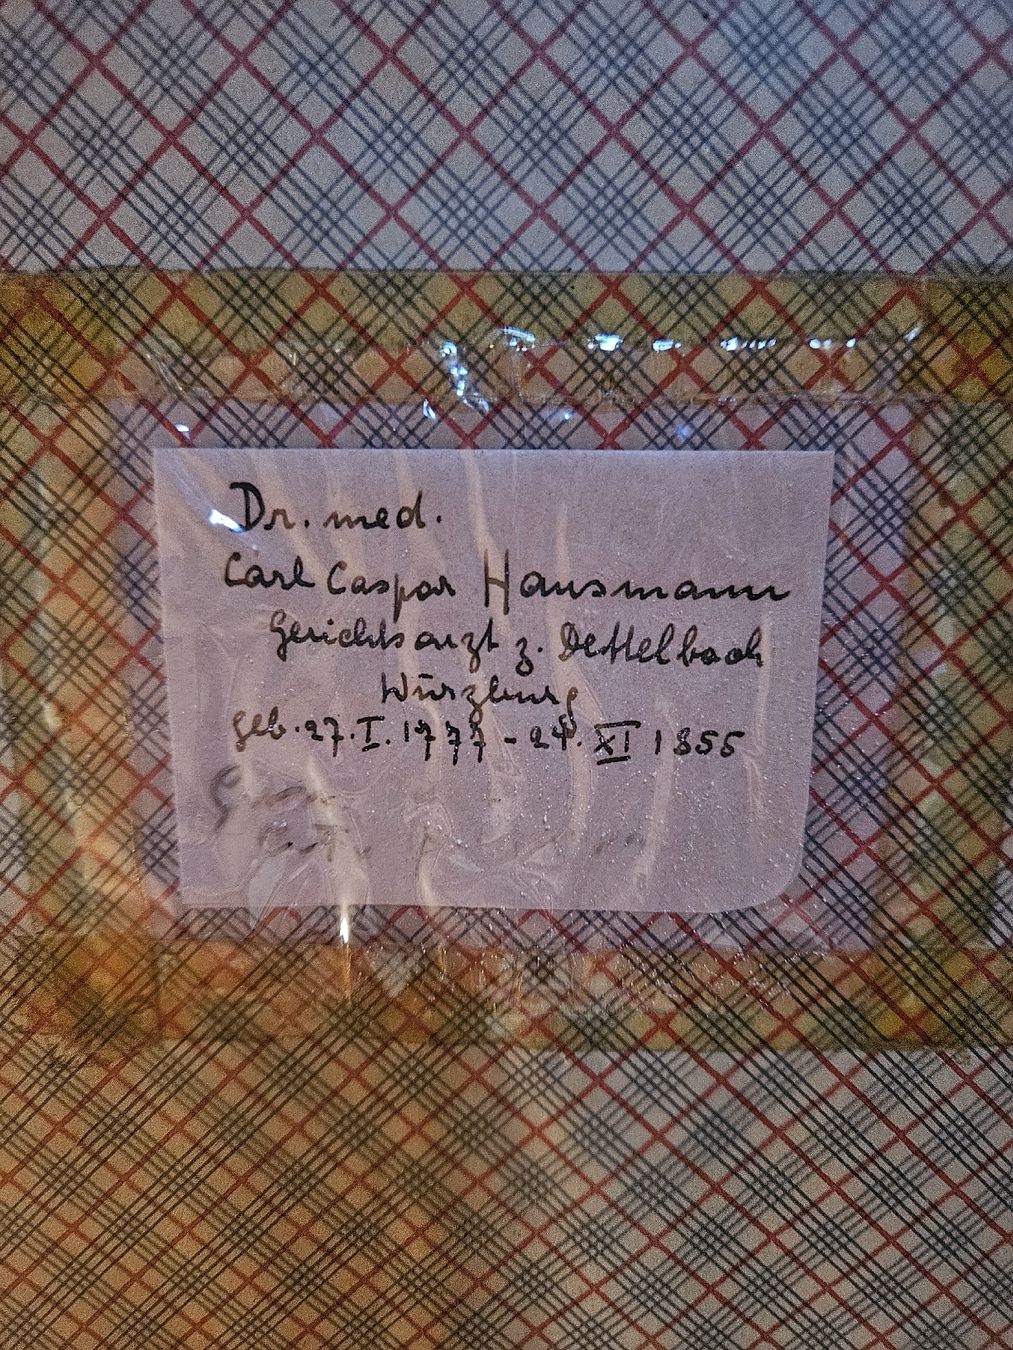 Dr. med.
Carl Caspar Hausmann
Gerichtsarzt z. Dettelbach
Würzburg
geb. 27. I. 1777 - 24. XI 1855